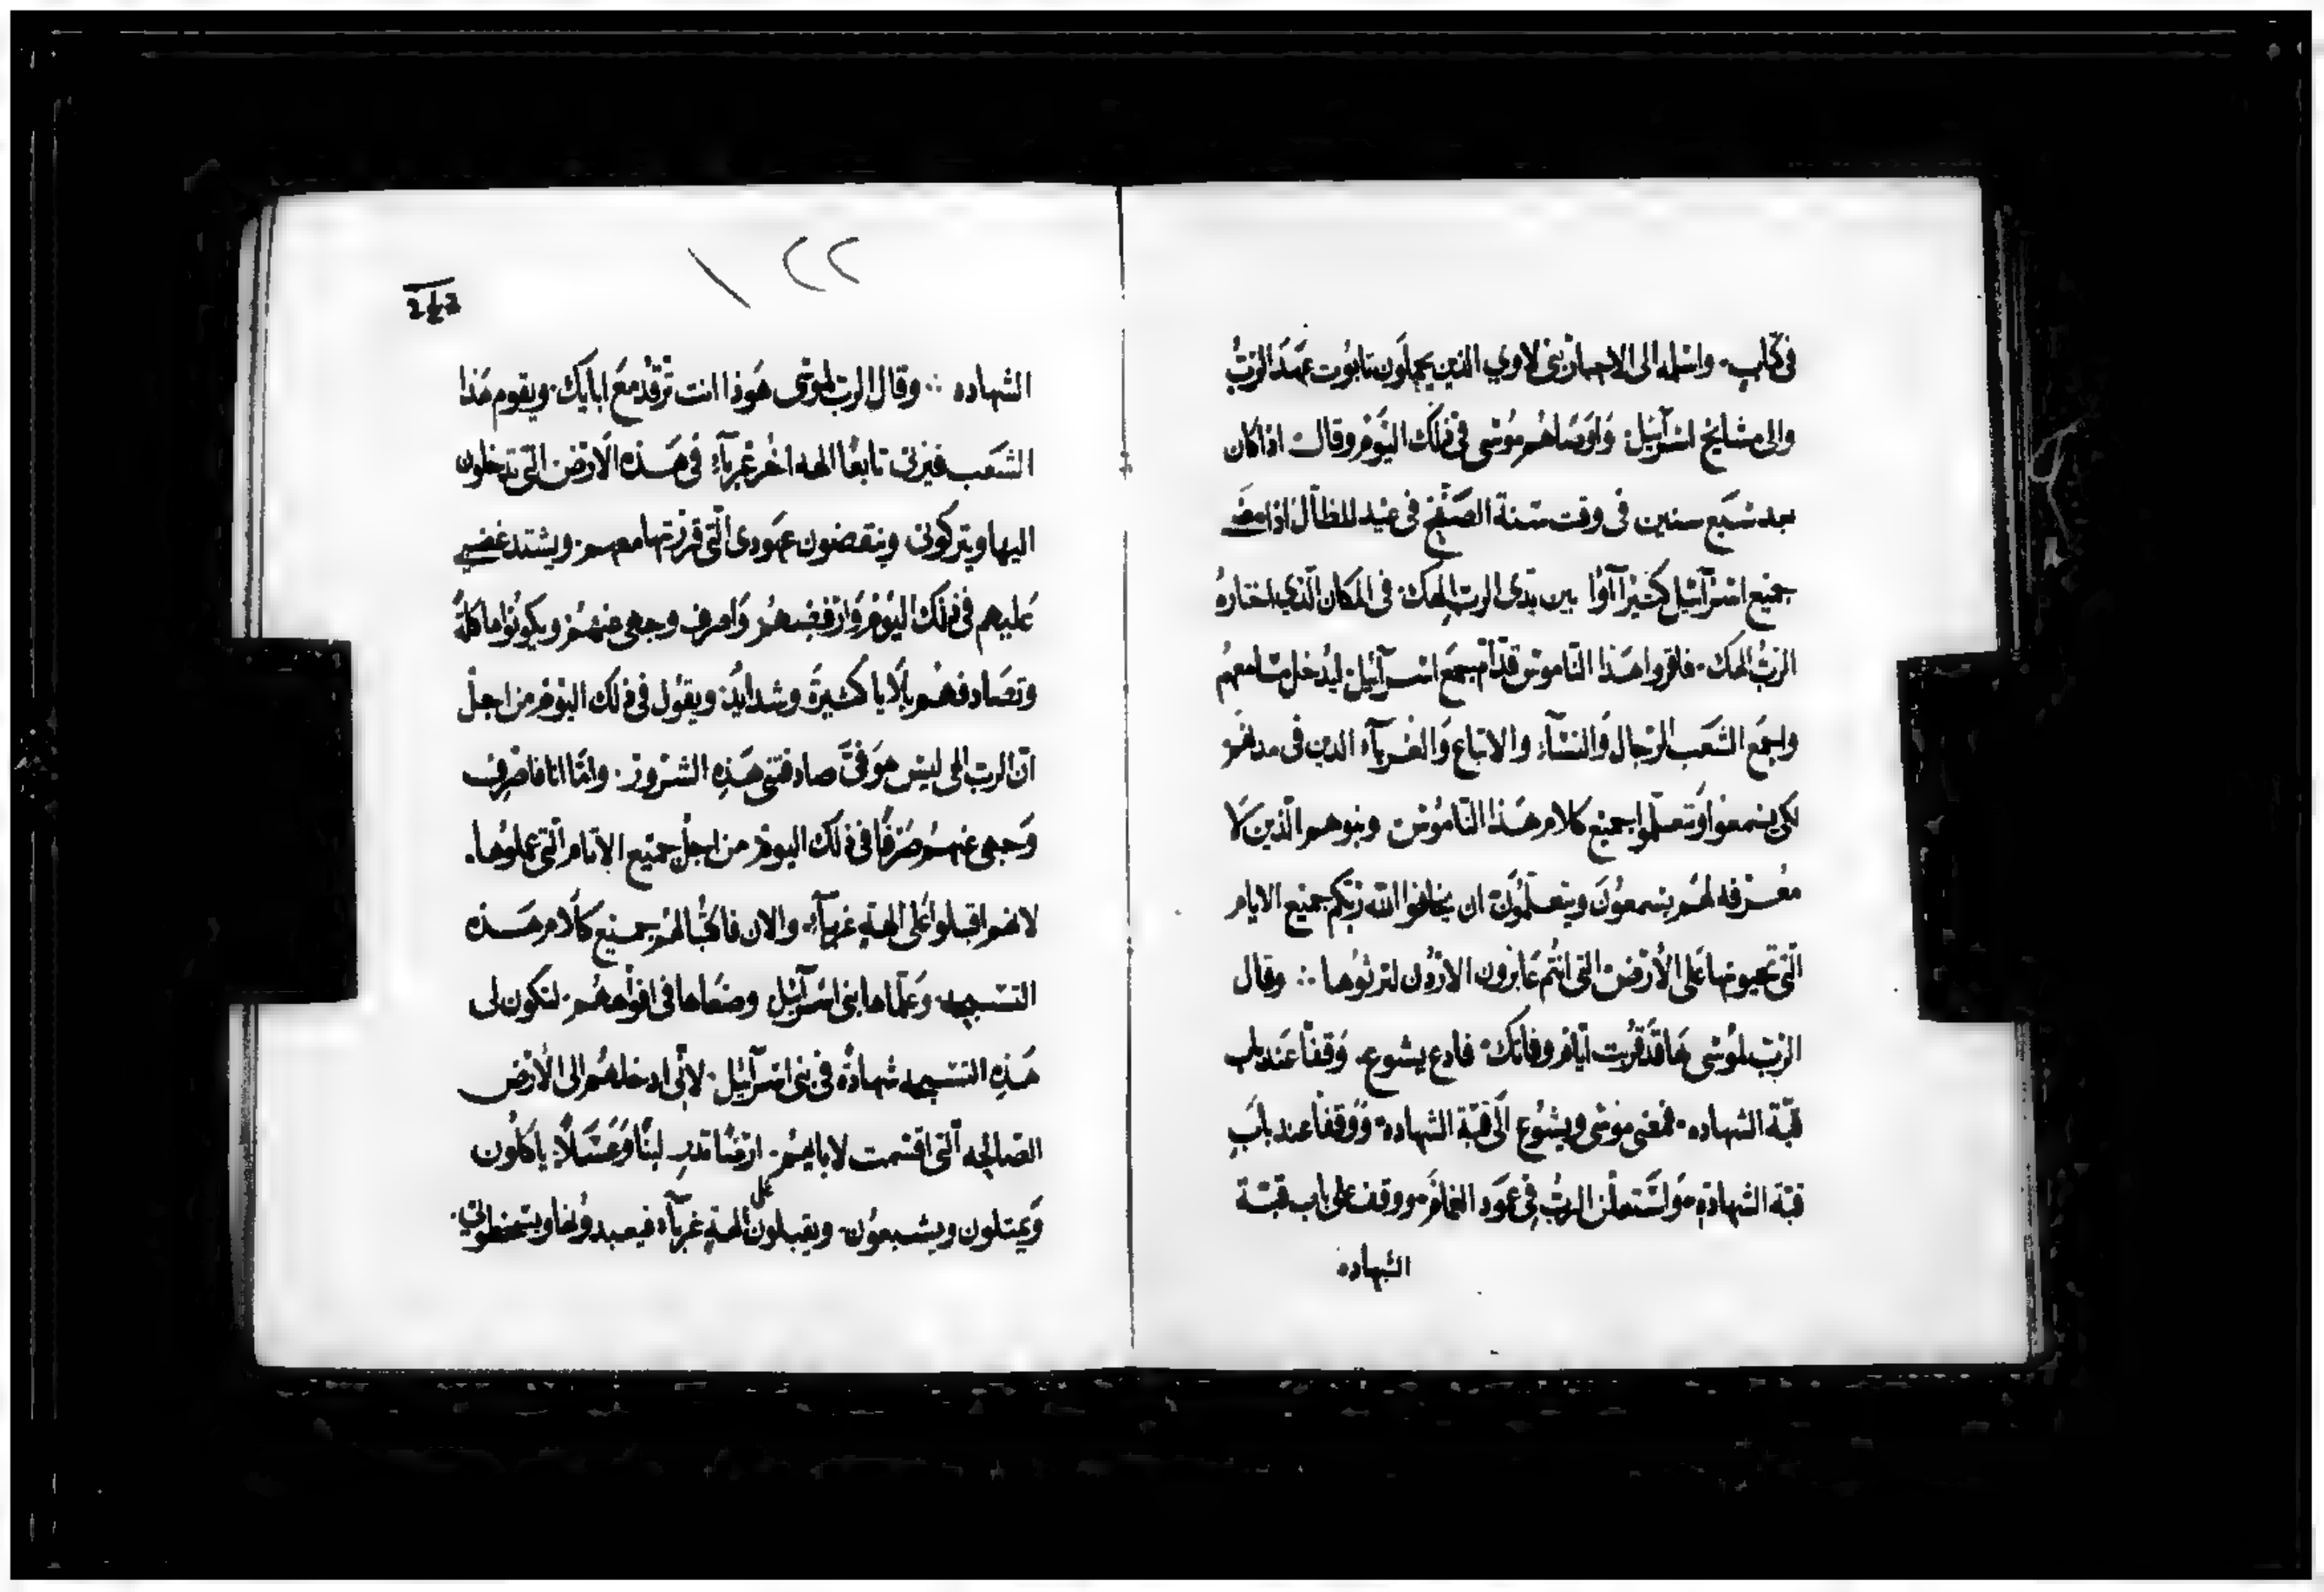 في كتاب. واسلمه الى الاحبار بني لاوي الذين يحملون تابوت عهد الرب
والى مشايخ اسرآئيل. واوصاهم موسى في ذلك اليوم وقال اذا كان
بعد سبع سنين في وقت سنة الصفح في عيد المظال اذا مضى
جميع اسرآئيل كثيرا آوا بين يدى الرب الهك. في المكان الذي اختاره
الرب الهك. فاقروا هذا الناموس قدام جميع اسرآئيل ليدخل مسامعهم
واجمع الشعب الرجال والنسآء والاتباع والغربآء الدين في مدنهم
لكي يسمعوا وتتعلموا جميع كلام هذا الناموس وبنوهم الذين لا
معرفه لهم يسمعون ويتعلمون ان يخافوا الله ربكم جميع الايام
التي تحيونها على الارض التي انتم عابرون الاردن لترثوها ∴ وقال
الرب لموسى ها قد قربت ايام وفاتك. فادع يشوع. وقفا عند باب
قبة الشهاده. فمضى موسى ويشوع الى قبة الشهاده. ووقفا عند باب
قبة الشهادة. واستعلن الرب في عمود الغمام ووقف على باب قبة
الشهاده
١٢٢
الشهاده ∴ وقال الرب لموسى هوذا انت ترقد مع ابايك. ويقوم هذا
الشعب فيزني تابعا الهه اخر غربآء في هذه الارض التي تدخلون
اليها ويتركوني وينقضون عهودى التي قررتها معهم. ويشتد غضبي
عليهم في ذلك اليوم وارفضهم واصرف وجهي عنهم ويكونوا ماكلة
وتصادفهم بلايا كثيرة وشدايد ويقول في ذلك اليوم من اجل
ان الرب الهي ليس هو في صادفتني هذه الشرور. وامّا انا فاصرف
وجهي عنهم صرفا في ذلك اليوم من اجل جميع الاثام التي عملوها.
لانهم اقبلوا على الهة غربآء. والان فاكتبا لهم جميع كلام هذه
التسبحه وعلماها بني اسرآئيل وضعاها في افواههم. لتكون لى
هذه التسبحه شهادة في بني اسرآئيل. لاني ادخلهم الى الارض
الصالحه التي اقسمت لابايهم. ارضا تدر لبنا وعسلا. ياكلون
ويمتلون ويشبعون. ويقبلون على الهة غربآء فيعبدونها ويسخطوني.